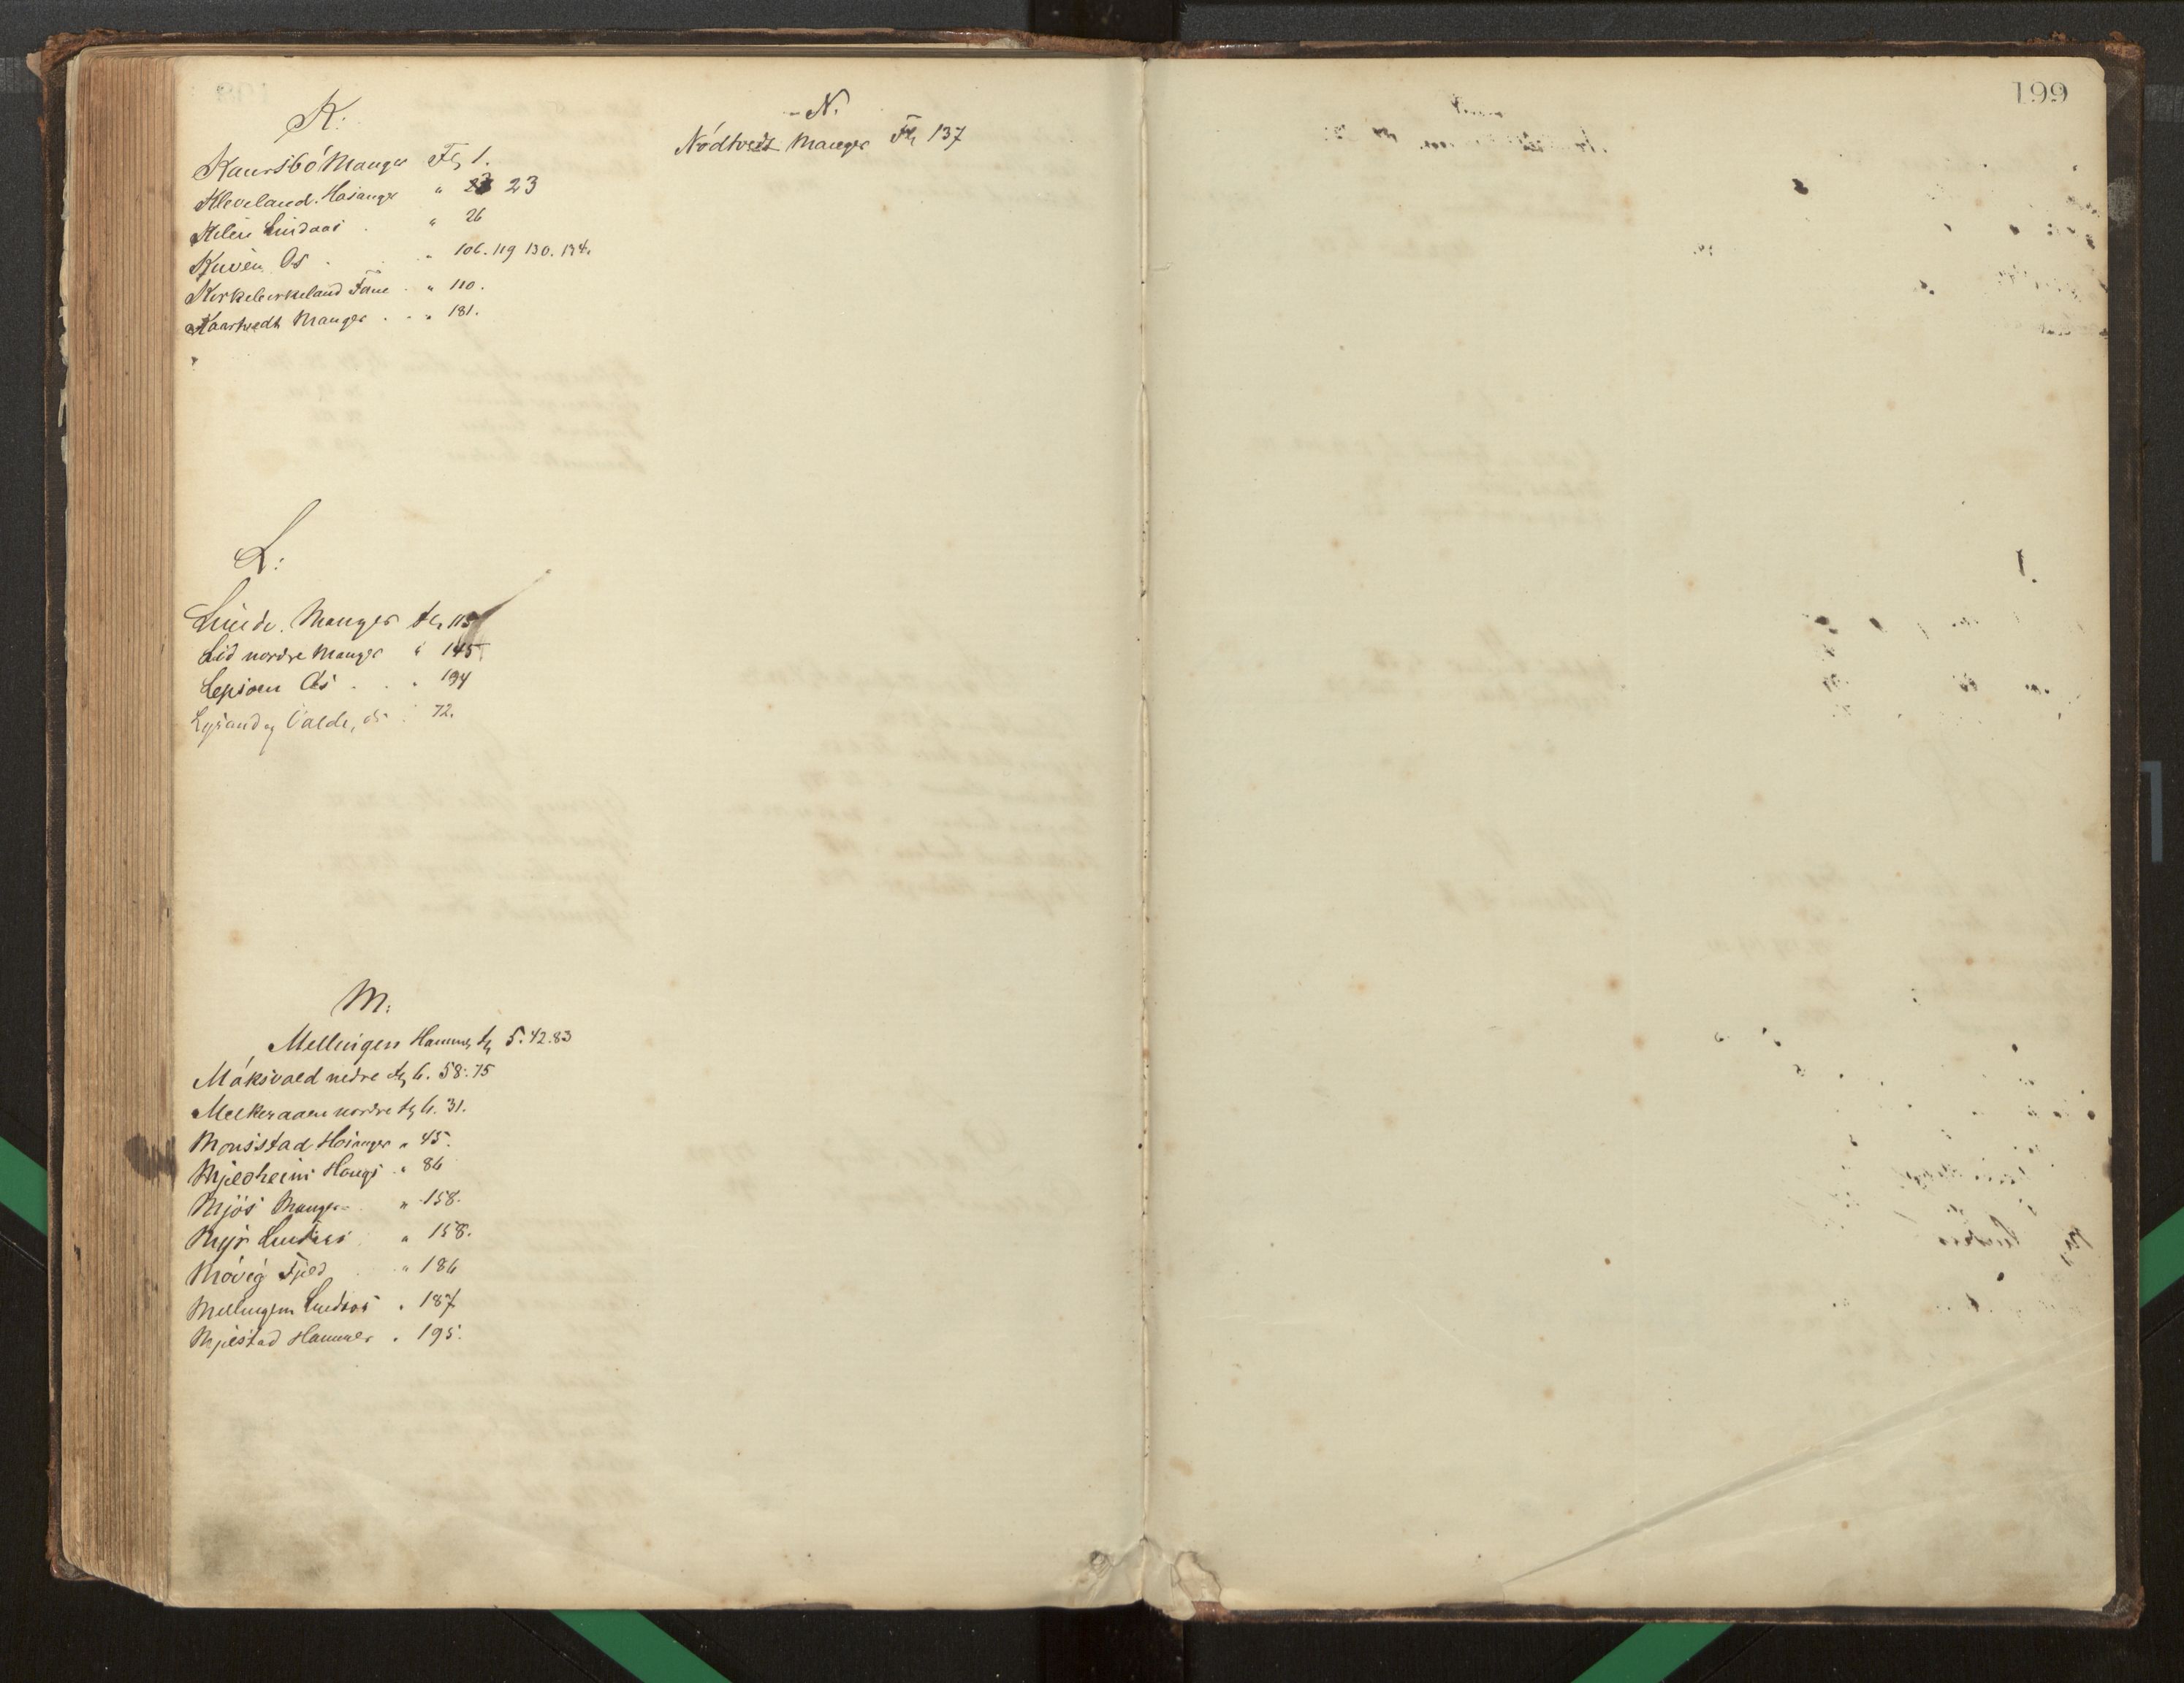 K:
Kaursbö Manger Fl, 1.
Kleveland. Hosanger " 23 23
Kilen Lindaas . " 26
Kuven Os . . " 106. 119 130. 134.
Kirkebirkeland Fane . " 110.
Kaartvedt Manger . . " 181.
L:
Linde. Manger fl, 115
Lid nordre Manger " 145
Lepsøen Os . . . 194
Lysand og Valde, Os : 72.
M:
Mellingen Hammer fl, 5. 42. 83
Móksvold nedre fl, 6. 58. 75
Melkeraaen nordre fl, 6. 31.
Monsstad Hosanger " 45.
Mjeldheim Haugs . " 86
Mjös Manger . " 158.
Myr Lindaas . " 158.
Móvig Fjeld . " 186
Mellingen Lindaas . 187
Mjelstad Hammer . 195.
- N.
Nódtvedt Manger Fl, 137
199